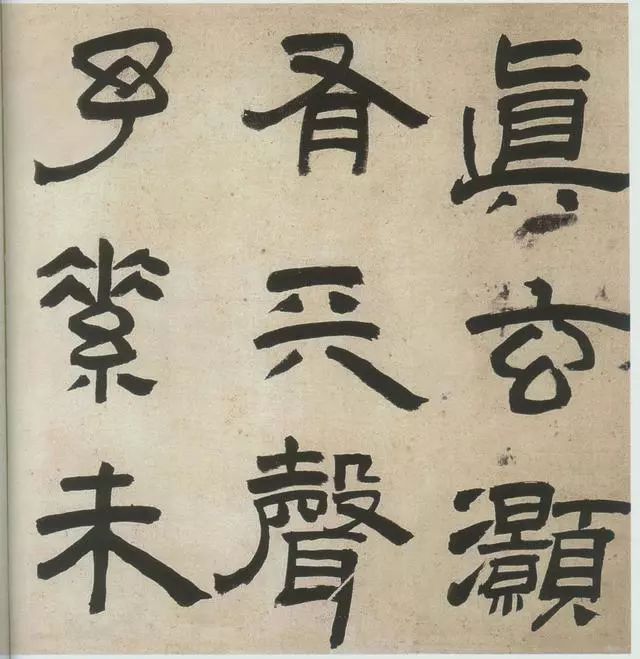 眞玄灝
有天聲
予素未